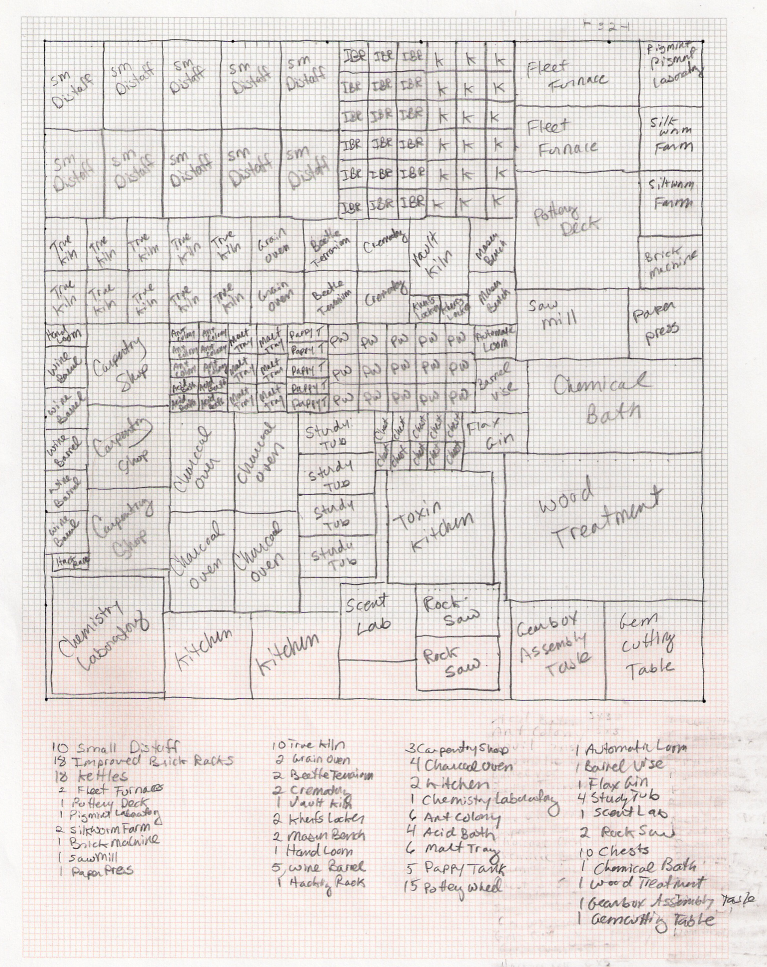 sm Distaff
sm Distaff
sm Distaff
sm Distaff
sm Distaff
IBR IBR IBR K K K
Fleet Furnace
Pigmint Pigment Laboratory
IBR IBR IBR K K K
IBR IBR IBR K K K
Fleet Furnace
Silk wrm Farm
sm Distaff
sm Distaff
sm Distaff
sm Distaff
sm Distaff
IBR IBR IBR K K K
IBR IBR IBR K K K
IBR IBR IBR K K K
Pottery Deck
Silkwrm Farm
True Kiln
True Kiln
True Kiln
True Kiln
Grain Oven
Beetle Terrarium
Crematory
Vault Kiln
Mason Bench
Brick Machine
True Kiln
True Kiln
True Kiln
True Kiln
Grain Oven
Beetle Terrarium
Crematory
Mason Bench
Saw mill
Paper press
Hand Loom
Carpentry Shop
Ant Colony
Ant Colony
Malt Tray
Malt Tray
Pappy T
PW PW PW PW PW
Automatic Loom
Wine Barrel
Ant Colony
Ant Colony
Pappy T
Ant Colony
Ant Colony
Malt Tray
Malt Tray
Pappy T
PW PW PW PW PW
Barrel vise
Chemical Bath
Acid Bath
Acid Bath
Pappy T
Wine Barrel
Acid Bath
Acid Bath
Malt Tray
Malt Tray
Pappy T
PW PW PW PW PW
Wine Barrel
Carpentry Shop
Charcoal Oven
Charcoal Oven
Study Tub
Chest Chest Chest Chest Chest
Flax Gin
Wine Barrel
Study Tub
Chest Chest Chest Chest Chest
Wine Barrel
Carpentry Shop
Study Tub
Toxin Kitchen
Wood Treatment
Charcoal Oven
Charcoal Oven
Study Tub
Chemistry Laboratory
Kitchen
Kitchen
Scent Lab
Rock Saw
Rock Saw
Gearbox Assembly Table
Gem cutting Table
10 Small Distaff
18 Improved Brick Racks
18 Kettles
2 Fleet Furnace
1 Pottery Deck
1 Pigmint Laboratory
2 Silkworm Farm
1 Brick Machine
1 SawMill
1 Paper Press
10 True Kiln
2 Grain Oven
2 Beetle Terrarium
2 Crematory
1 Vault Kiln
2 Khefs Locker
2 Mason Bench
1 Hand Loom
5 Wine Barrel
1 Hackling Rack
3 Carpentry Shop
4 Charcoal Oven
2 Kitchen
1 Chemistry Laboratory
6 Ant Colony
4 Acid Bath
6 Malt Tray
5 Pappy Tank
15 Pottery Wheel
1 Automatic Loom
1 Barrel Vise
1 Flax Gin
4 Study Tub
1 Scent Lab
2 Rock Saw
10 Chests
1 Chemical Bath
1 Wood Treatment
1 Gearbox Assembly Table
1 Gemcutting Table